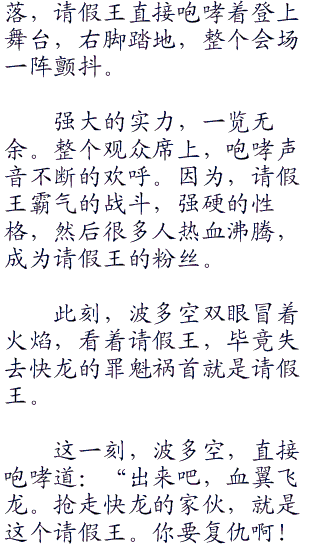 落，请假王直接咆哮着登上
舞台，右脚踏地，整个会场
一阵颤抖。
强大的实力，一览无
余。整个观众席上，咆哮声
音不断的欢呼。因为，请假
王霸气的战斗，强硬的性
格，然后很多人热血沸腾，
成为请假王的粉丝。
此刻，波多空双眼冒着
火焰，看着请假王，毕竟失
去快龙的罪魁祸首就是请假
王。
这一刻，波多空，直接
咆哮道：“出来吧，血翼飞
龙。抢走快龙的家伙，就是
这个请假王。你要复仇啊！